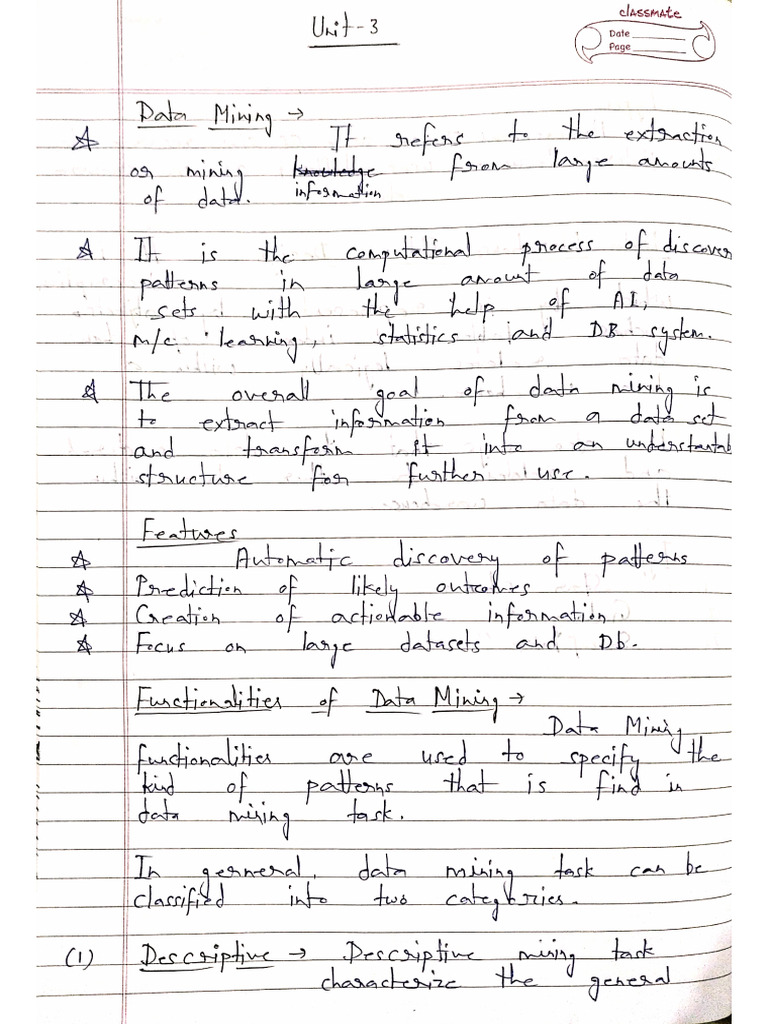 Unit-3
classmate
Date
Page
Data Mining →
It refers to the extraction
or mining knowledge from large amounts
information
of data.
It is the computational process of discover
patterns in large amount of data
sets with the help of AI,
m/c learning, statistics and DB system.
The overall goal of data mining is
to extract information from a data set
and transform it into an understantab
structure for further use.
Features
Automatic discovery of patterns
Prediction of likely outcomes
Creation of actionable information
Focus on large datasets and Db.
Functionalities of Data Mining →
Data Mining
functionalities are used to specify the
kind of patterns that is find in
data mining task.
In germeral, data mining task can be
classified into two categories.
(1) Descriptive → Descriptive mining task
characterize the general